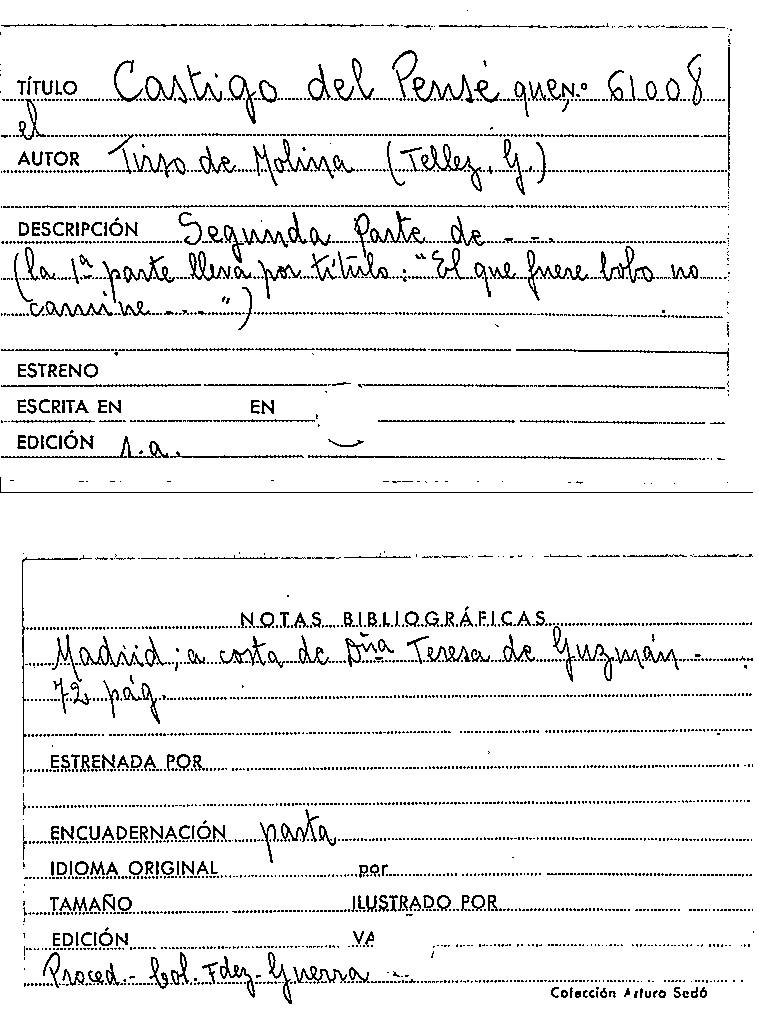 TÍTULO Castigo del Pensé que, N.º 61008
el
AUTOR Tirso de Molina (Tellez, G.)
DESCRIPCIÓN Segunda Parte de - - -
(la 1ª parte lleva por título: "El que fuere bobo no
camine - - - - ")
ESTRENO
ESCRITA EN EN
EDICIÓN s.a.
NOTAS BIBLIOGRÁFICAS
Madrid; a costa de Dña Teresa de Guzmán -
72 pág.
ESTRENADA POR
ENCUADERNACIÓN pasta
IDIOMA ORIGINAL por
TAMAÑO ILUSTRADO POR
EDICIÓN VA
Proced.- Col. Fdez-Guerra - -
Colección Arturo Sedó